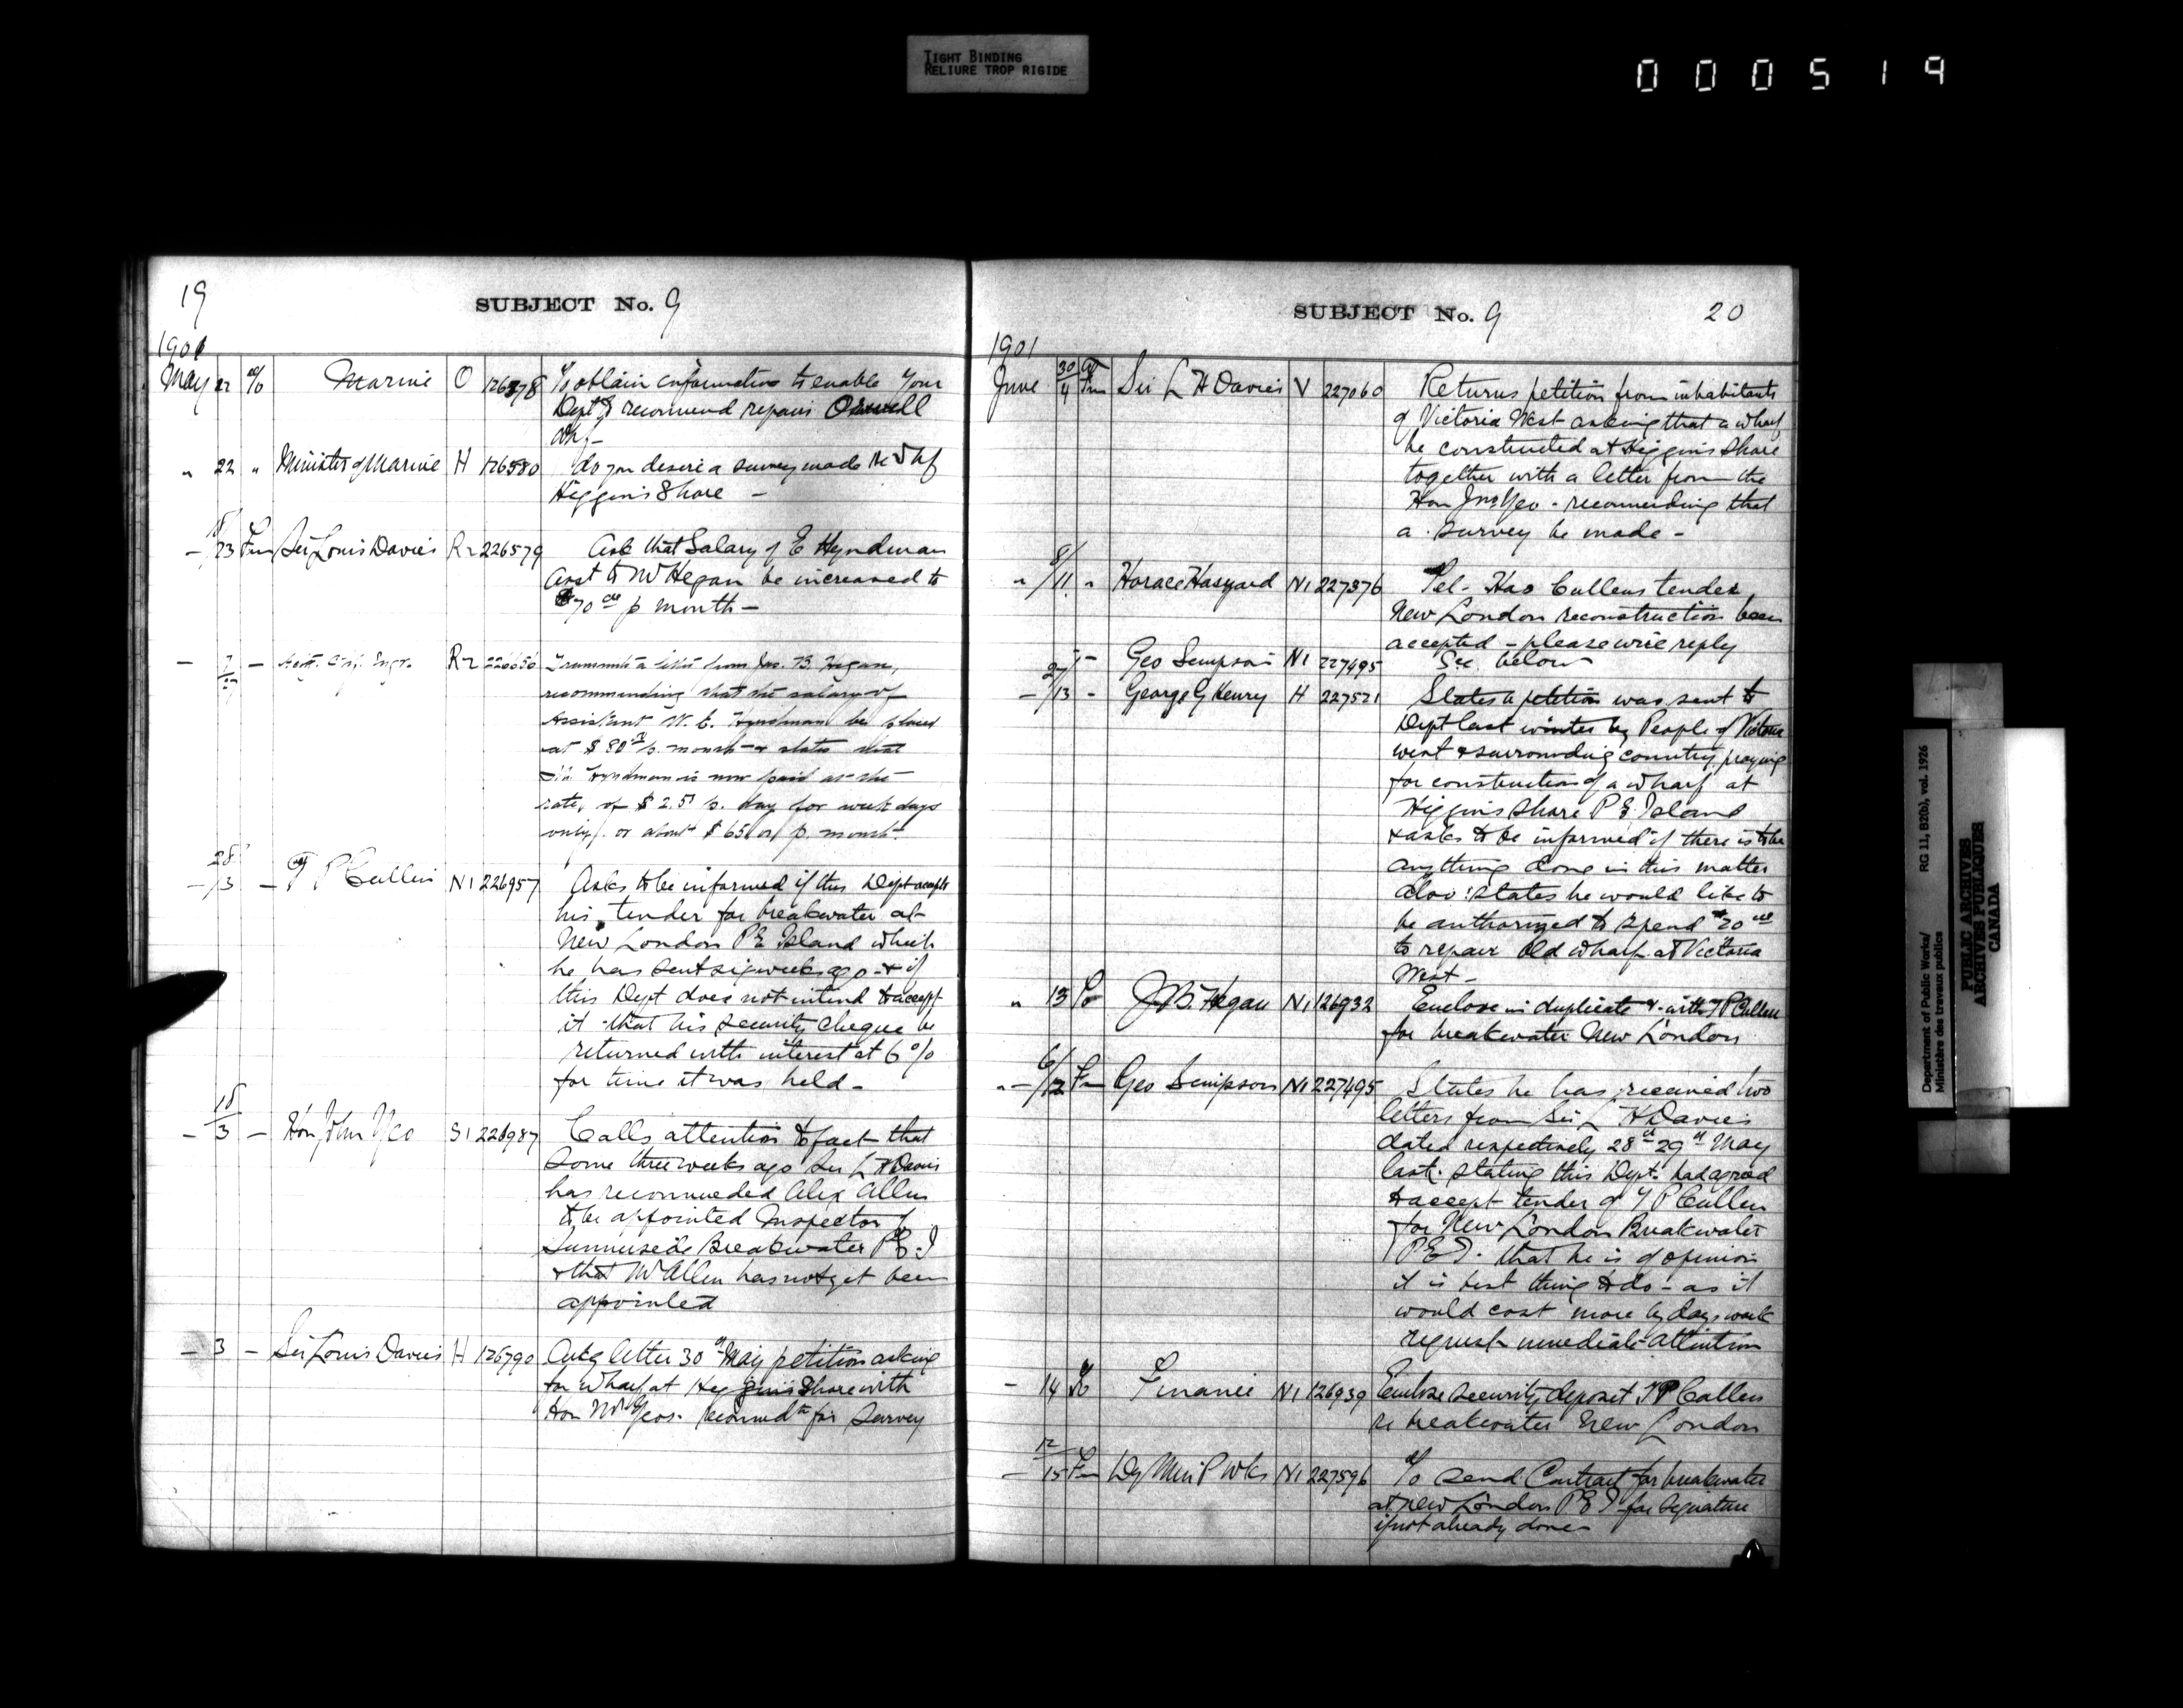 TIGHT BINDING
RELIURE TROP RIGIDE
000519
19
SUBJECT No. 9
1901
May 22 To Marine O 126578 To obtain information to enable your
Dept to recommend repairs Orwell
Whf -
" 22 " Minister of Marine H 126580 do you desire a survey made re Whf
Higgins Shore -
- 18/23 Fm Sir Louis Davies R2 226579 Ask that Salary of E Hyndman
Asst to Mr Hegan be increased to
$70 00 p month -
- - Asst. Chf. Engr. R2 226636 Transmits a letter from Jno. B. Hegan,
recommending that the salary of
Assistant W. E. Hyndman be placed
at $80 p. month & states that
Mr Hyndman is now paid at the
rate of $2.50 p. day for week days
only, or about $65.00 p. month.
- 28/3 - T P Cullen N1 226957 Asks to be informed if this Dept accepts
his tender for breakwater at
New London P E Island which
he has sent six weeks ago - & if
this Dept does not intend to accept
it - that his security cheque be
returned with interest at 6%
for time it was held -
- 18/3 - Hon John Yeo S1 226987 Calls attention to fact that
some three weeks ago Sir L H Davies
has recommended Alex Allen
to be appointed Inspector of
Summerside Breakwater P E I
& that Mr Allen has not yet been
appointed
- 3 - Sir Louis Davies H 126790 Ackg letter 30th May petition asking
for Wharf at Higgins Shore with
Hon Mr Yeos. recommdn for Survey
SUBJECT No. 9
20
1901
June 30/4 Fm Sir L H Davies V 227060 Returns petition from inhabitants
of Victoria West asking that a wharf
be constructed at Higgins Shore
together with a letter from the
Hon Jno. Yeo - recommending that
a survey be made -
" 8/11 " Horace Haszard N1 227376 Tel - Has Cullens tender
New London reconstruction been
accepted - please wire reply
- Geo Simpson N1 227495 See below
- 27/13 - George G Henry H 227521 States a petition was sent to
Dept last winter by People of Victoria
west & surrounding country, praying
for construction of a wharf at
Higgins Shore P E Island
& asks to be informed if there is to be
anything done in this matter
Also: States he would like to
be authorized to spend $20 00
to repair Old Wharf at Victoria
West -
" 13 To J B Hegan N1 126932 Enclose in duplicate with T P Cullen
for breakwater New London
" - 6/12 Fm Geo Simpson N1 227495 States he has received two
letters from Sir L H Davies
dated respectively 28th 29th May
last. stating this Dept. had agreed
to accept tender of T P Cullen
for New London Breakwater
P E I. that he is of opinion
it is best thing to do - as it
would cost more by days work
request immediate attention
- 14 To Finance N1 126939 Enclose security deposit T P Cullen
re breakwater New London
- 12/15 Fm Dy Min P Wks N1 227596 To send Contract for breakwater
at New London P E I for signature
if not already done -
Department of Public Works/
Ministère des travaux publics
RG 11, B2(b), vol. 1926
PUBLIC ARCHIVES
ARCHIVES PUBLIQUES
CANADA